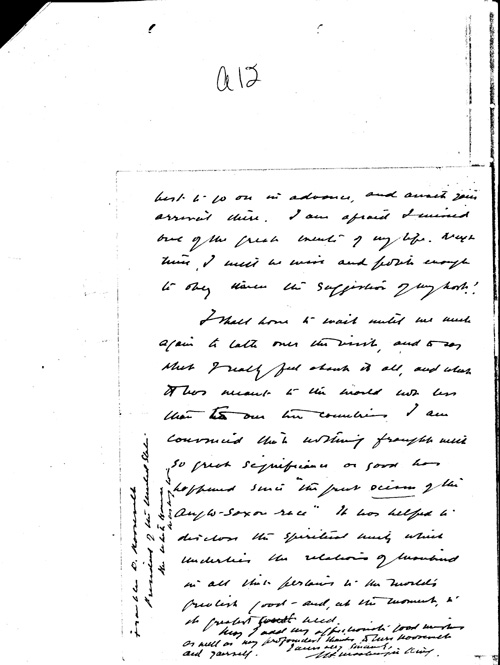 A12
best to go on in advance, and await your
arrival there. I am afraid I missed
one of the great events of my life. Next
time, I will be wise and polite enough
to obey the suggestion of my host!
I shall have to wait until we meet
again to talk over the visit, and to say
what I really feel about it all, and what
it has meant to the world not less
than to our two countries. I am
convinced that nothing fraught with
so great significance or good has
happened since "the great scism of the
Anglo-Saxon race" It has helped to
disclose the spiritual unity which
underlies the relations of mankind
in all that pertains to the world's
greatest good - and, at the moment, to
its greatest need.
May I add my affectionate good wishes
as well as my profoundest thanks to Mrs Roosevelt
and yourself. Yours very sincerely,
Franklin D. Roosevelt
President of the United States
The White House
Washington